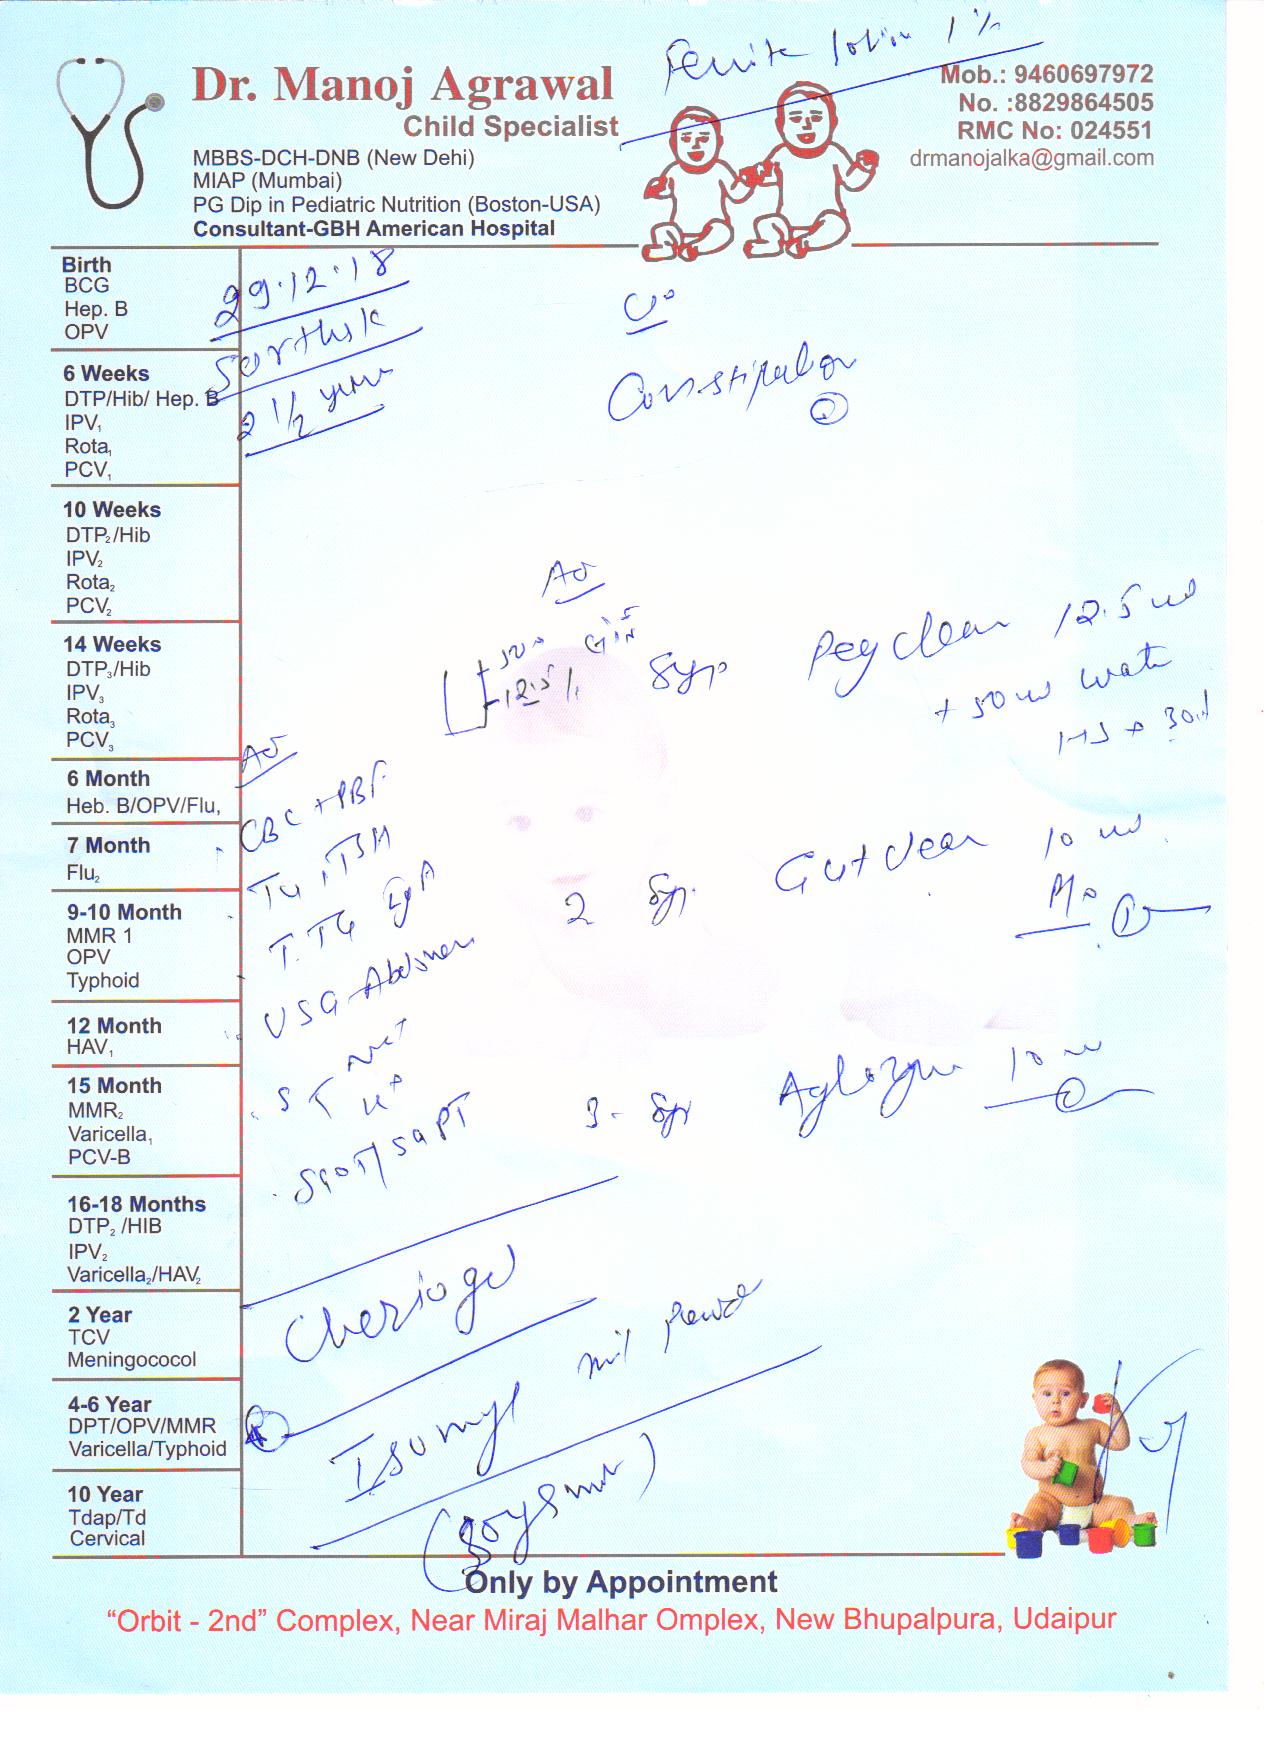 Perlite lotion 1%
Dr. Manoj Agrawal
Child Specialist
MBBS-DCH-DNB (New Dehi)
MIAP (Mumbai)
PG Dip in Pediatric Nutrition (Boston-USA)
Consultant-GBH American Hospital
Mob.: 9460697972
No. :8829864505
RMC No: 024551
drmanojalka@gmail.com
Birth
BCG
Hep. B
OPV
6 Weeks
DTP/Hib/ Hep. B
IPV₁
Rota₁
PCV₁
10 Weeks
DTP₂/Hib
IPV₂
Rota₂
PCV₂
14 Weeks
DTP₃/Hib
IPV₃
Rota₃
PCV₃
6 Month
Heb. B/OPV/Flu₁
7 Month
Flu₂
9-10 Month
MMR 1
OPV
Typhoid
12 Month
HAV₁
15 Month
MMR₂
Varicella₁
PCV-B
16-18 Months
DTP₂ /HIB
IPV₂
Varicella₂/HAV₂
2 Year
TCV
Meningococol
4-6 Year
DPT/OPV/MMR
Varicella/Typhoid
10 Year
Tdap/Td
Cervical
29.12.18
Sarthak
2 1/2 years
C/o
Constipation
Adv
Syp Peg clear 12.5 ml
+ 50 ml water
HS x 30d
2 Syp. Gut clear 10 ml
3 - Syp Aglozyme 10 ml
Adv
CBC + PBF
T4, TSH
T.TG IgA
USG Abdomen
S Na+
K+
SGOT/SGPT
Isomyl
(Soy8mil)
Only by Appointment
“Orbit - 2nd” Complex, Near Miraj Malhar Omplex, New Bhupalpura, Udaipur